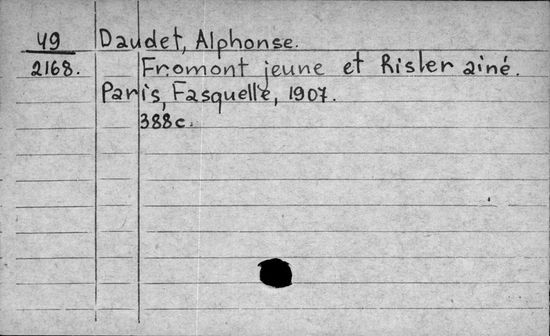 49 Daudet, Alphonse.
2168. Fromont jeune et Risler ainé.
Paris, Fasquelle, 1907.
388c.